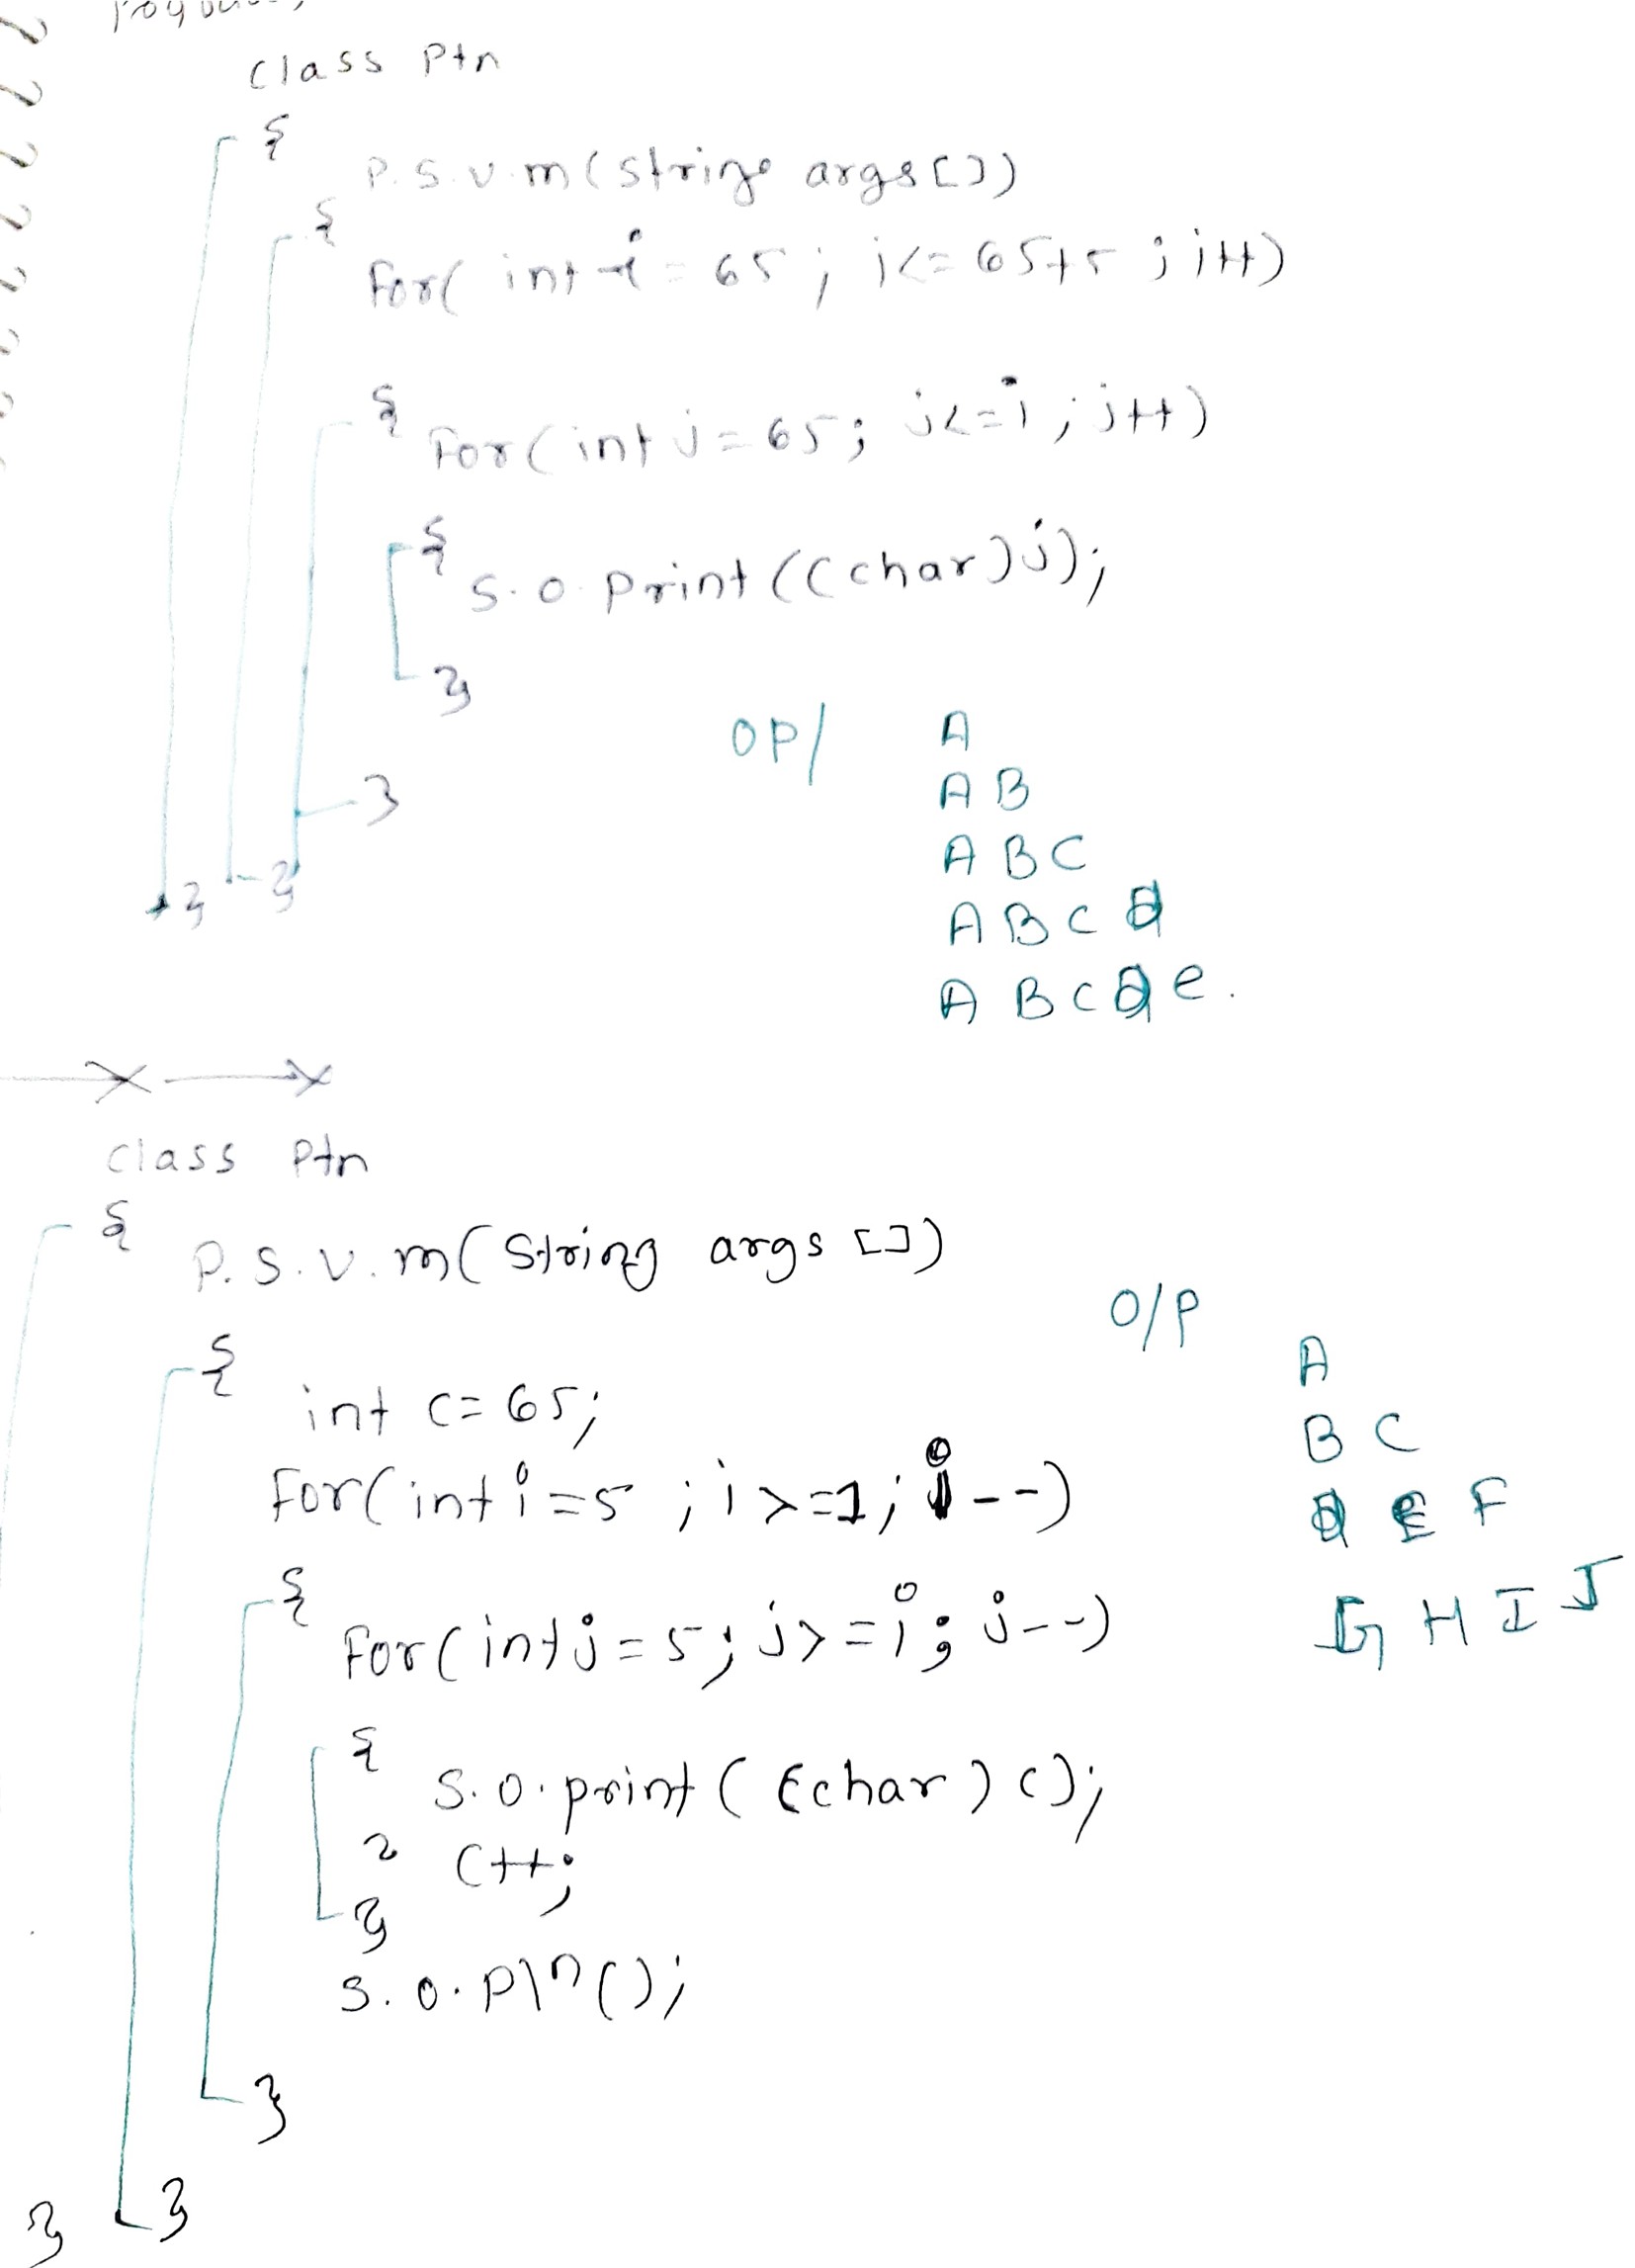 class Ptn
{
P.S.v.m(String args[])
{
For( int i = 65 ; i<= 65+5 ; i++)
{ For(int j=65; j<=i ; j++)
{
S.o.print((char)j);
}
OP/ A
} A B
A B C
} } A B C D
A B C D e.
class Ptn
{
P.S.v.m(String args[])
O/P
{ A
int c=65;
B C
For(int i=5 ; i>=1; i--)
D E F
{
For(int j=5; j>=i; j--)
G H I J
{
S.o.print((char)c);
c++;
}
S.o.pln();
}
}
}